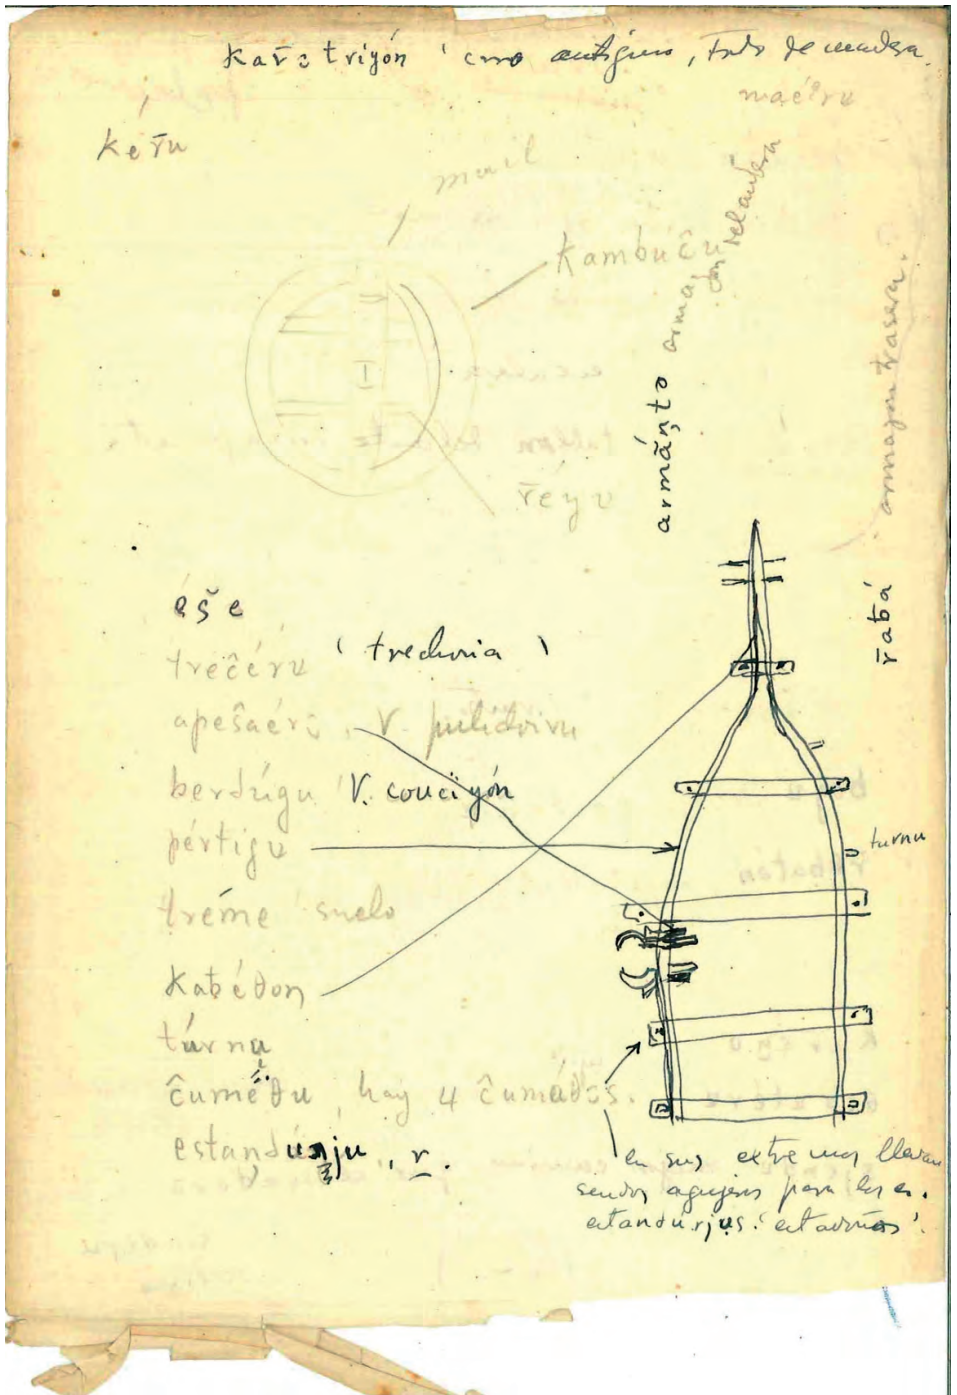 Kar̄etriyón 'carro antiguo, todo de madera.
maéiru
ker̄u
muil
Kambúĉu
r̄éyu
armãnto armajon delantera
r̄abá armajon trasera.
éše
treĉéru 'trechoria'
apešaéru, V. pulidoiru
berdúgu V. couciyón
pértigu
turnu
tréme 'suelo
Kabéðon
túrnu
ĉuméðu, hay 4 ĉuméðos.
en sus extremos llevan
sendos agujeros para los e.
estandúrjus 'estadoños'.